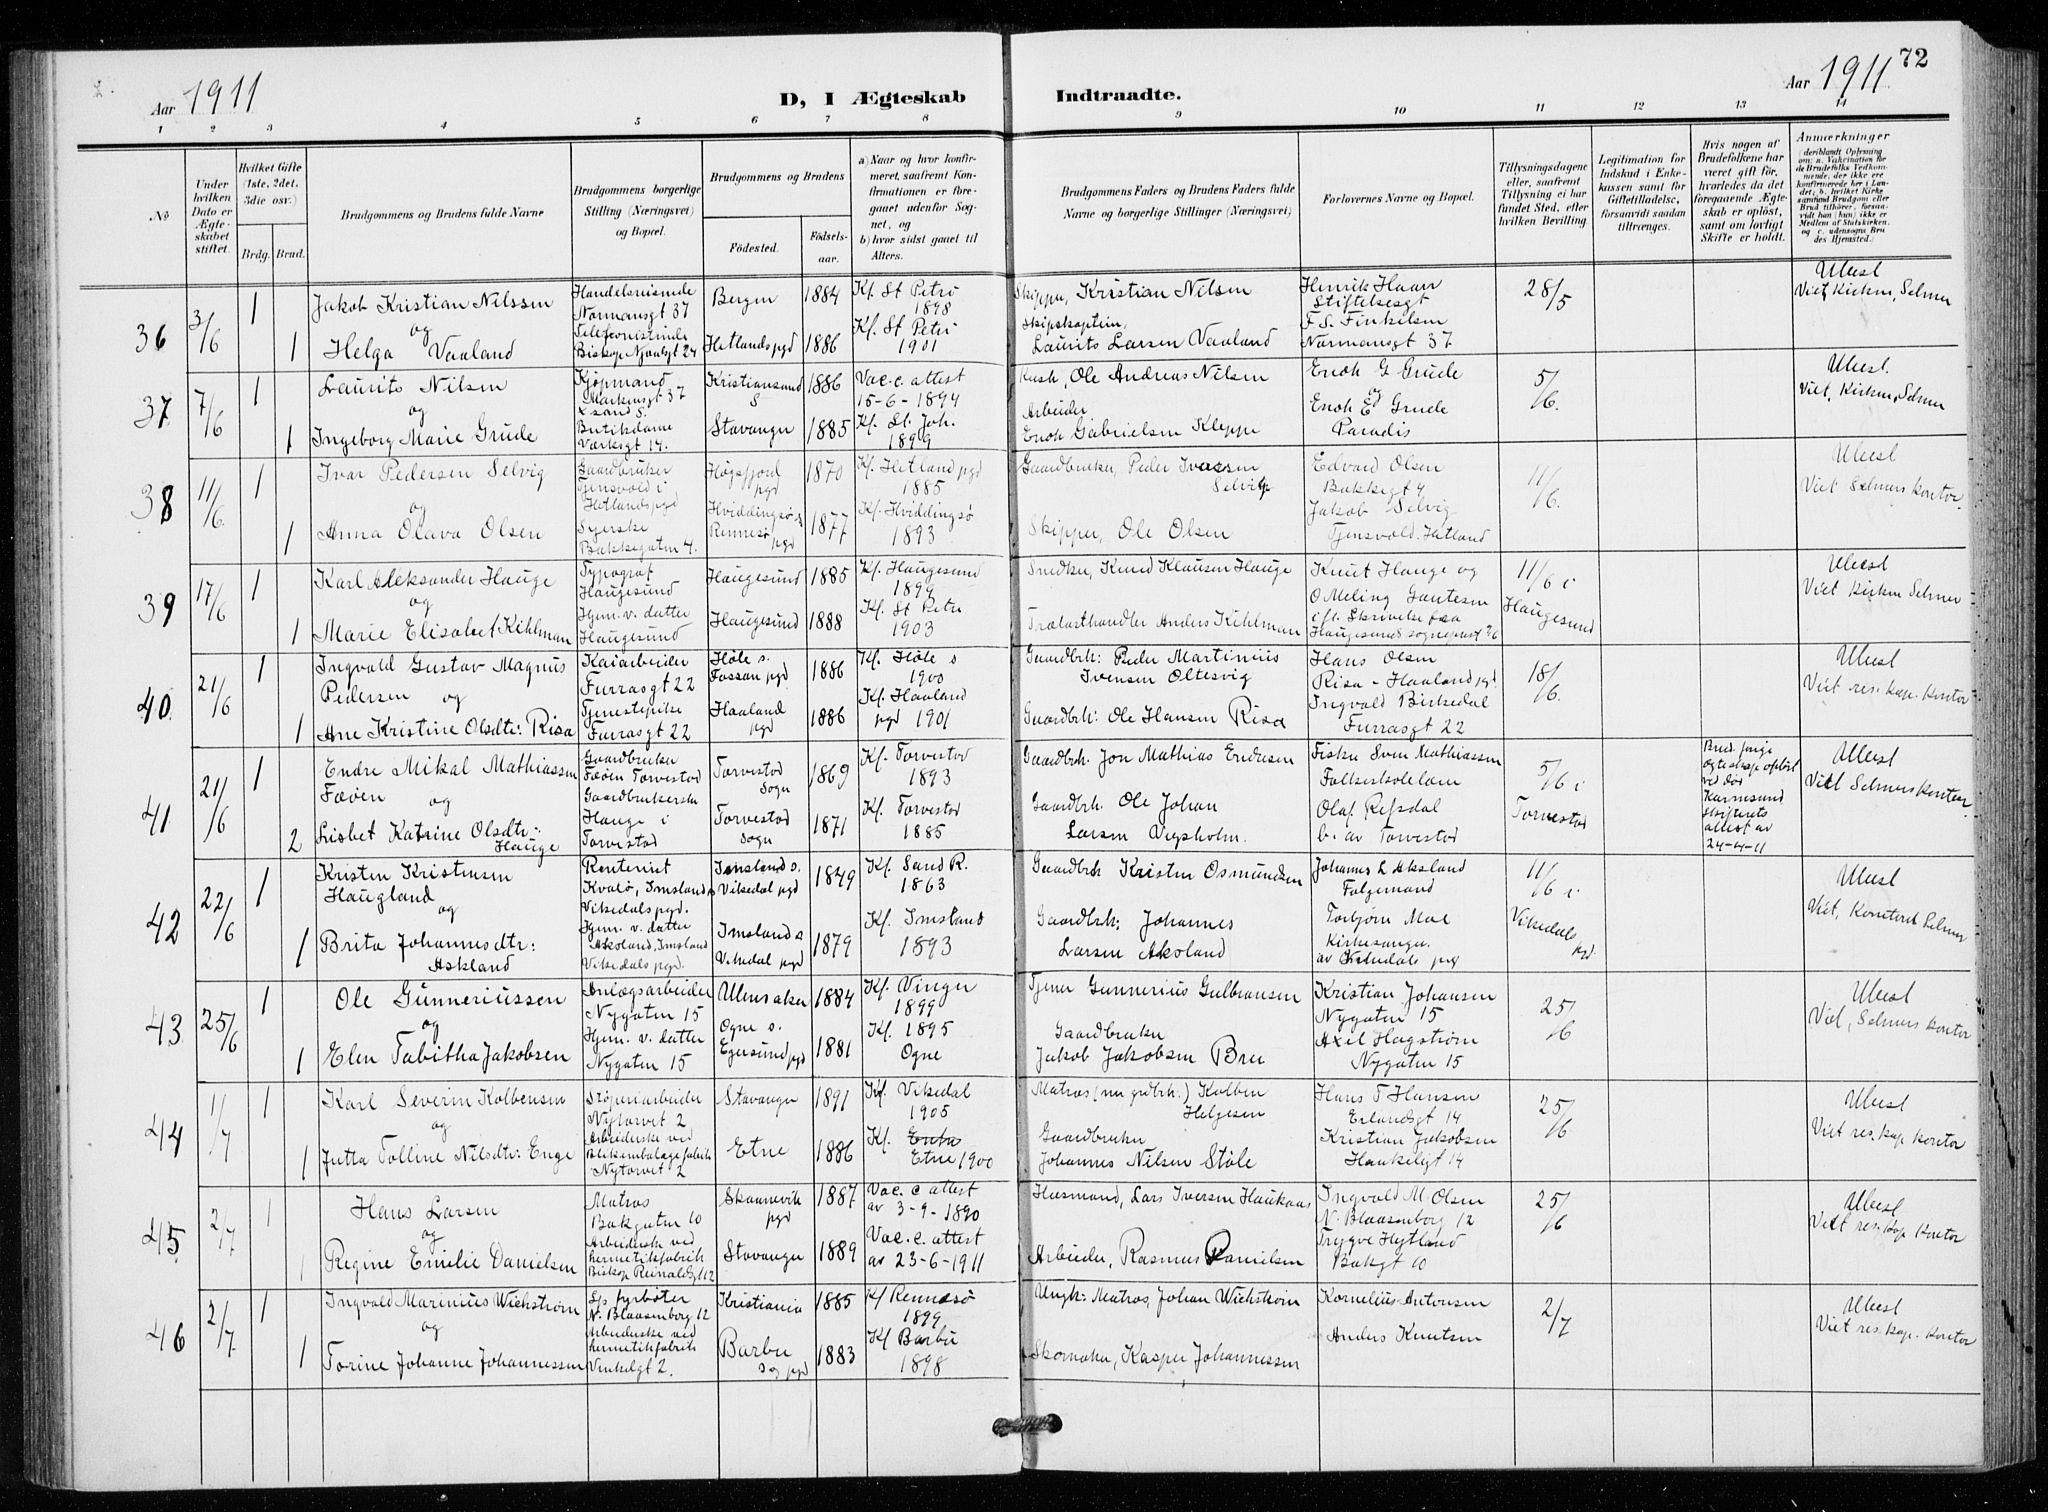 Aar 1911
D, I Ægteskab Indtraadte.
Aar 1911.
72
1 2 3 4 5 6 7 8 9 10 11 12 13 14
No
Under hvilken Dato er Ægteskabet stiftet.
Hvilket Gifte (1ste, 2det, 3die osv.)
Brdg. Brud.
Brudgommens og Brudens fulde Navne
Brudgommens borgerlige Stilling (Næringsvei) og Bopæl.
Brudgommens og Brudens
Födested. Födselsaar.
a) Naar og hvor konfirmeret, saafremt Konfirmationen er foregaaet udenfor Sognet, og
b) hvor sidst gaaet til Alters.
Brudgommens Faders og Brudens Faders fulde Navne og borgerlige Stillinger (Næringsvei)
Forlovernes Navne og Bopæl.
Tillysningsdagene eller, saafremt Tillysning ei har fundet Sted, efter hvilken Bevilling.
Legitimation for Indskud i Enkekassen samt for Giftetilladelse, forsaavidt saadan tiltrænges.
Hvis nogen af Brudefolkene har været gift för, hvorledes da det foregaaende Ægteskab er oplöst, samt om lovligt Skifte er holdt.
Anmærkninger
(deriblandt Oplysning om: a. Vakcination för de Brudefolks Vedkommende, der ikke ere konfirmerede her i Landet; b. hvilket Kirkesamfund Brudgom eller Brud tilhörer, forsaavidt han (hun) ikke er Medlem af Statskirken, og c. udensogns Brudes Hjemsted.)
36 3/6 1
Jakob Kristian Nilssen
og
1 Helga Vaaland
Handelsreisende
Normansgt 37
Telefonistinde
Biskop Njaalsgt 24
Bergen 1884
Hetlands pgd 1886
Kf. St Petri
1898
Kf. St Petri
1901
Skipper, Kristian Nilsen
Skipskaptein,
Laurits Larsen Vaaland
Henrik Haar
Stiftelsesgt
F S. Finkelsen
Normansgt 37
28/5
Ubesl
Viet Kirken, Selmer
37 7/6 1
Laurits Nilsen
og
1 Ingeborg Marie Grude
Kjøpmand
Markensgt 37
Xsand S.
Butikdame
Verksgt 14.
Kristiansund S 1886
Stavanger 1885
Vac. c. attest
15-6-1894
Kf. St. Joh.
1899
Kusk, Ole Andreas Nilsen
Arbeider
Enok Gabrielsen Kleppe
Enok G Grude
og
Enok E Grude
Paradis
5/6.
Ubesl.
Viet, Kirken, Selmer
38 11/6. 1
Ivar Pedersen Selvig
og
1 Anna Olava Olsen
Gaardbruker
Tjensvold i
Hetlands pgd
Syerske
Bakkegaten 4.
Høgsfjord pgd 1870
Hviddingsø s
Rennesø pgd 1877
Kf. Hetland pgd
1885
Kf. Hviddingsø
1893
Gaardbruker, Peder Iversen
Selvig
Skipper, Ole Olsen
Edvard Olsen
Bakkegt 4
Jakob Selvig
Tjensvold. Hetland
11/6.
Ubesl
Viet Selmers kontor.
39 17/6 1
Karl Aleksander Hauge
og
1 Marie Elisabet Kihlman
Typograf
Haugesund
Hjem. v. datter
Haugesund
Haugesund 1885
Haugesund 1888
Kf. Haugesund
1899
Kf. St Petri
1903
Snedker, Knud Klausen Hauge
Trælasthandler Anders Kihlman
Knut Hauge og
O Meling Gautesen
ift. Skrivelse fra
Haugesund sognepræst
11/6 i
Haugesund
Ubesl
Viet Kirken Selmer
40. 21/6 1
Ingvald Gustav Magnus
Pedersen og
1 Ane Kristine Olsdtr: Risa
Kaiarbeider
Furrasgt 22
Tjenestepike
Furrasgt 22
Høle s.
Fossan pgd 1886
Haaland pgd 1886
Kf. Høle s
1900
Kf. Haaland
pgd 1901
Gaardbrk: Peder Martinius
Ivensen Oltesvig
Gaardbrk: Ole Hansen Risa
Hans Olsen
Risa - Haaland pgd
Ingvald Birkedal
Furrasgt 22
18/6.
Ubesl
Viet res. kap. kontor
41 21/6 1
Endre Mikal Mathiassen
Fæøen og
2 Lisbet Katrine Olsdtr:
Hauge
Gaardbruker
Fæøen Torvestad
Gaardbrukerske
Hauge i
Torvestad
Torvestad Sogn 1869
Torvestad sogn 1871
Kf. Torvestad
1893
Kf. Torvestad
1885
Gaardbrk. Jon Mathias Endresen
Gaardbrk. Ole Johan
Larsen Vigsholm.
Fisker Sven Mathiassen
Folkeskolelærer
Olaf Refsdal
b. av Torvestad
5/6 i
Torvestad
Brud. forrige
egteskap opløst
ved død
Karmsund
skifterets
attest av
24-4-11
Ubesl
Viet Selmers kontor.
42 22/6 1
Kristen Kristensen
Haugland
og
1 Brita Johannesdtr:
Askland
Rentenist
Kvalø, Imsland s
Vikedals pgd.
Hjem. v. datter
Askland, Imsland
Vikedals pgd.
Imsland s.
Vikedal pgd 1849
Imsland s
Vikedal pgd 1879
Kf. Sand R.
1863
Kf. Imsland
1893
Gaardbrk Kristen Osmundsen
Gaardbrk: Johannes
Larsen Aksland
Johannes L Aksland
Falgemand
Torbjørn Moe
Kirkesanger.
av Vikedals pgd
11/6 i
Vikedals pgd.
Ubesl
Viet, Kontoret Selmer
43 25/6 1
Ole Gunneriussen
og
1 Elen Tabitha Jakobsen
Anlægsarbeider
Nygaten 15
Hjem. v. datter
Nygaten 15
Ullensaker 1884
Ogne s.
Egersund pgd 1881
Kf. Vinger
1899
Kf. 1895
Ogne
Tjener Gunnerius Gulbransen
Gaardbruker
Jakob Jakobsen Bru
Kristian Johansen
Nygaten 15
Axel Hagstrøm
Nygaten 15
25/6
Ubesl
Viet, Selmers kontor
44 1/7 1
Karl Severin Kolbensen
og
1 Jutta Talline Nilsdtr: Enge
Støperiarbeider
Nytorvet 2
Arbeiderske ved
Blikemballagefabrik
Nytorvet 2
Stavanger 1891
Etne 1886
Kf. Vikedal
1905
Kf. Etne
Etne 1900
Matros (nu grdbrk.) Kolben
Helgesen
Gaardbruker
Johannes Nilsen Støle
Hans T Hansen
Erlandsgt 14
Kristian Jakobsen
Haukeligt 14
25/6
Ubesl
Viet res. kap kontor
45 2/7 1
Hans Larsen
og
1 Regine Emilie Danielsen
Matros
Bakgaten 10
Arbeidersk ved
hermetikfabrik
Biskop Reinaldsgt 12
Skaanevik pgd 1887
Stavanger 1889
Vac. c attest
av 3-9-1890
Vac. c. attest
av 23-6-1911
Husmand, Lars Iversen Haukaas
Arbeider, Rasmus Danielsen
Ingvald M. Olsen
N. Blaasenborg 12
Trygve Høyland
Bakgt 10
25/6
Ubesl
Viet res. kap kontor
46 2/7. 1
Ingvald Marinius Wickstrøm
og
1 Torine Johanne Johannessen
Sp fyrbøter
N. Blaasenborg 12
Arbeiderske ved
hermetikfabrik
Vinkelgt 2.
Kristiania 1885
Barbu
Sog pgd 1883
Kf Rennesø
1899
Kf Barbu
1898
Ungk: Matros, Johan Wickstrøm
Skomaker, Kasper Johannessen
Kornelius Antonsen
Anders Knutsen
2/7
Ubesl
Viet res. kap. kontor